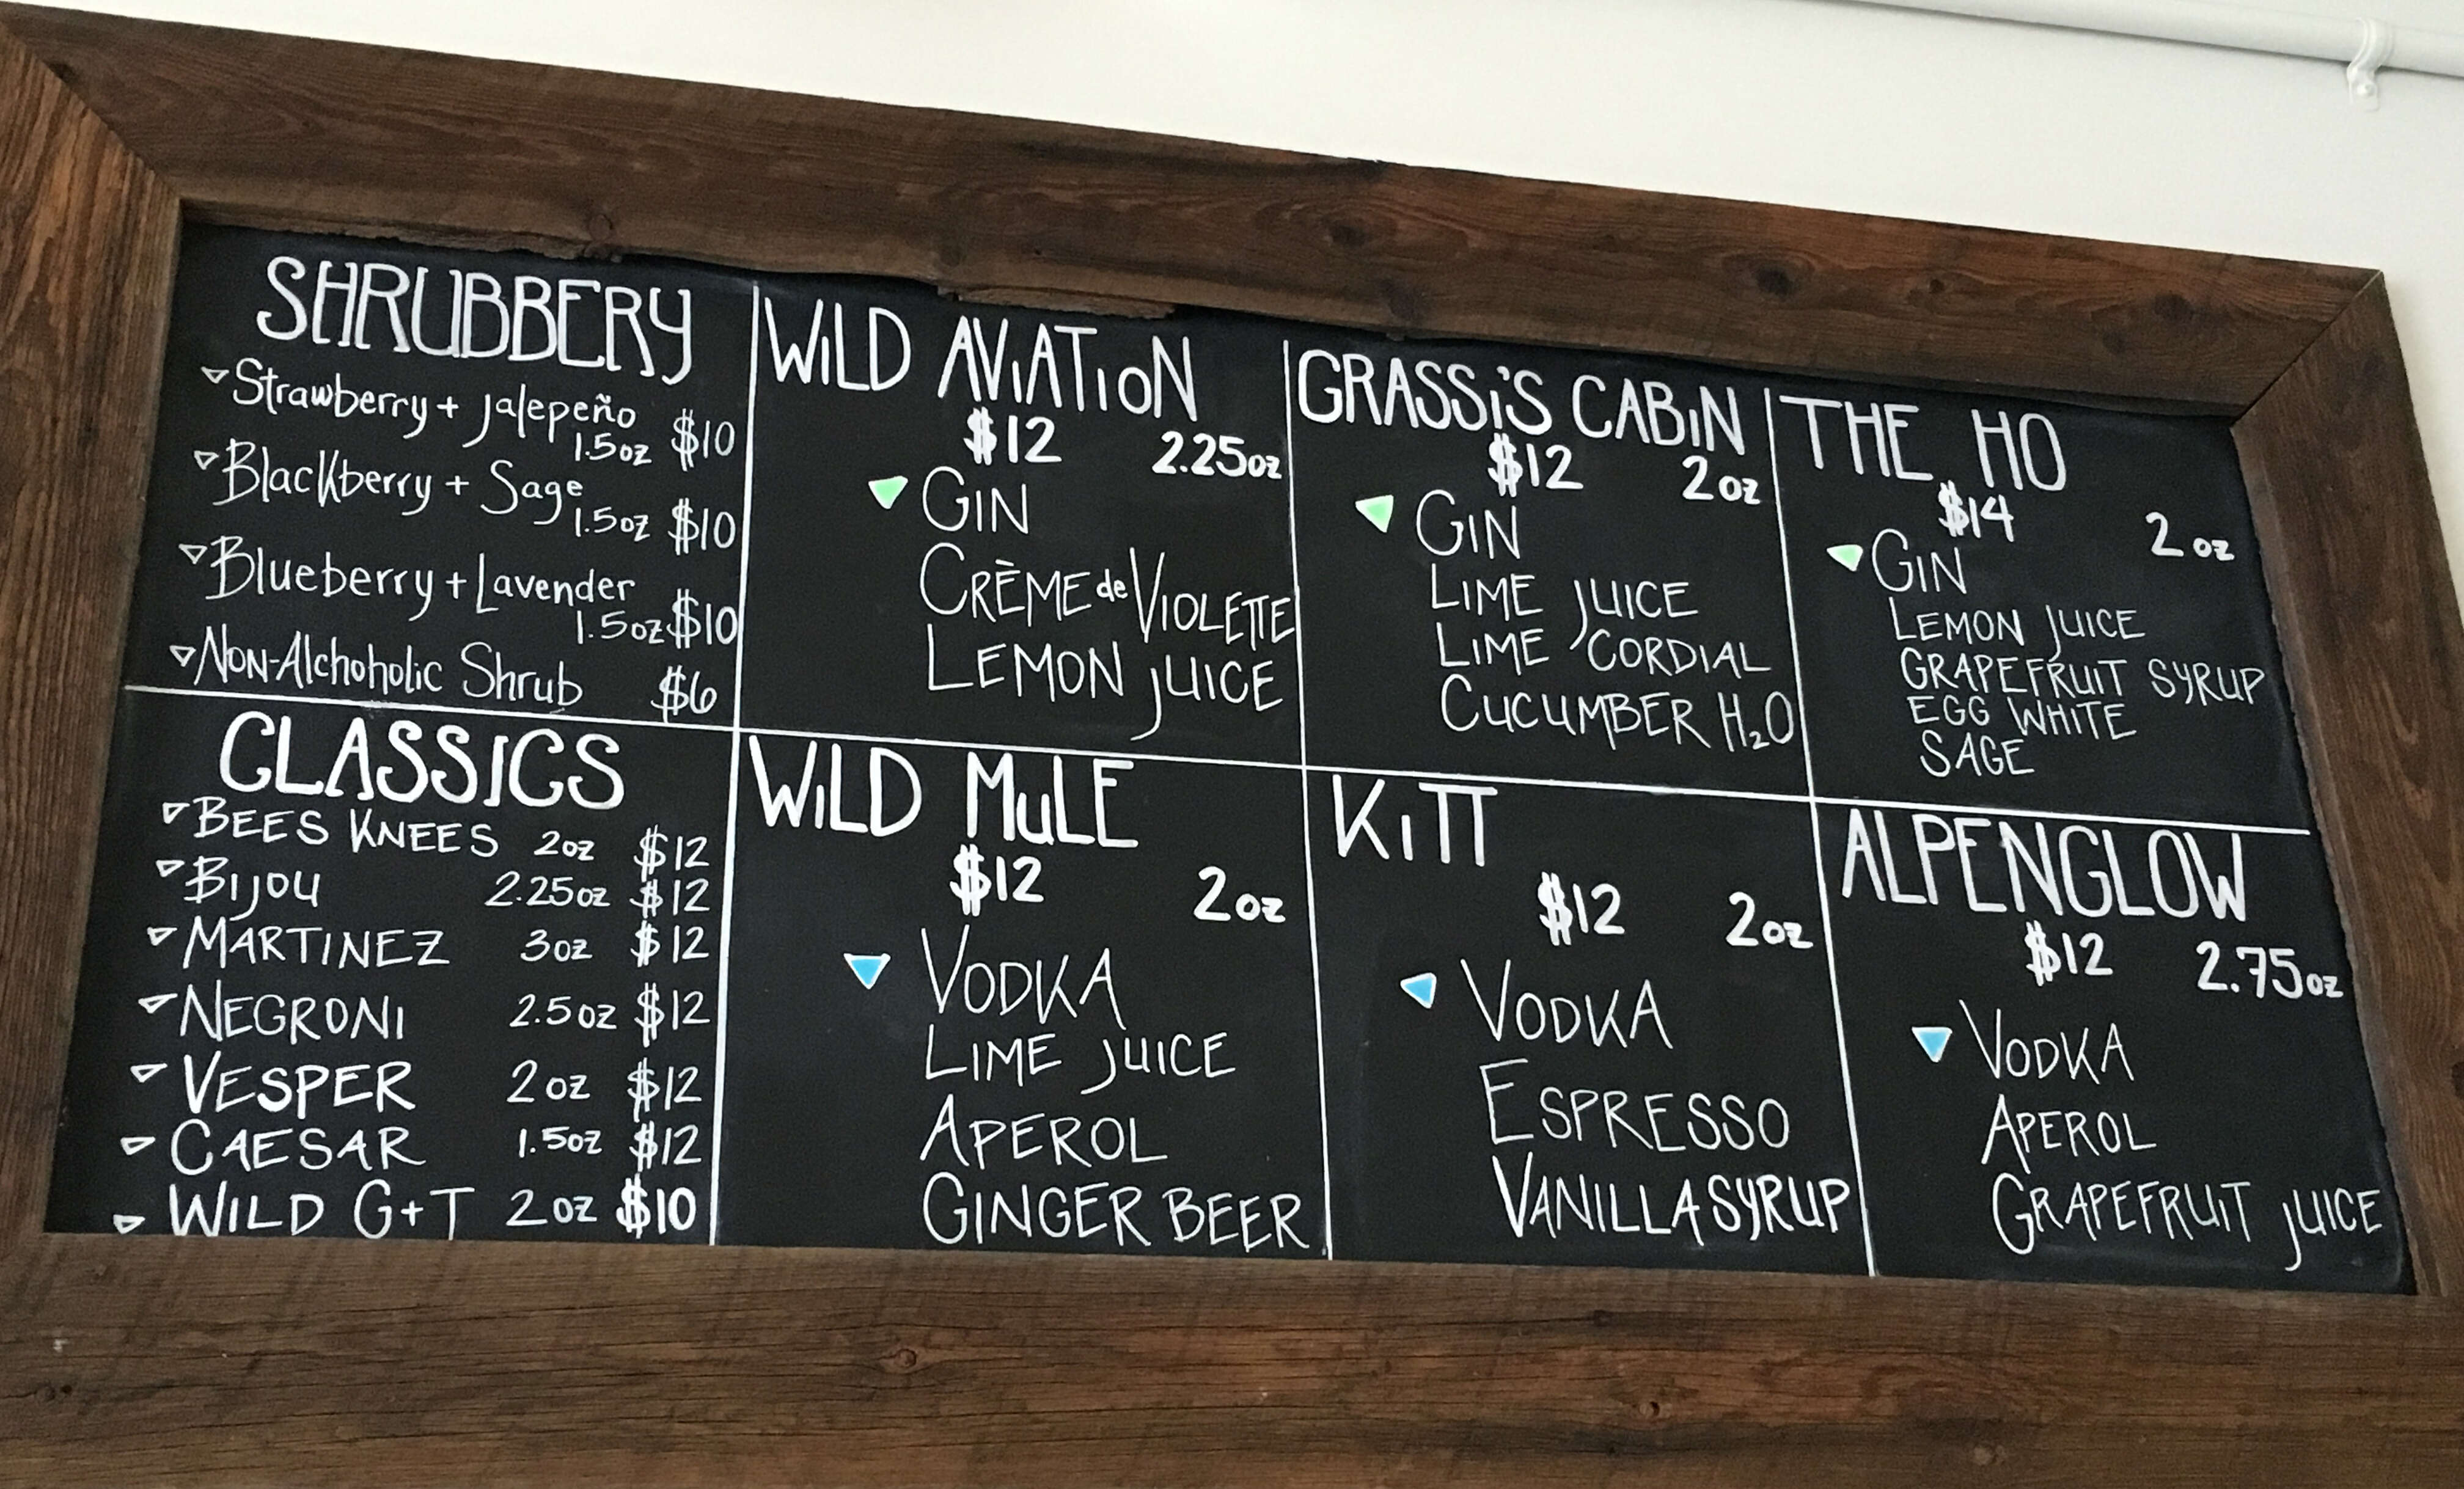 SHRUBBERY
Strawberry + Jalepeño
1.5oz $10
Blackberry + Sage
1.5oz $10
Blueberry + Lavender
1.5oz $10
Non-Alchoholic Shrub $6
CLASSICS
BEES KNEES 2oz $12
BIJOU 2.25oz $12
MARTINEZ 3oz $12
NEGRONI 2.5oz $12
VESPER 2oz $12
CAESAR 1.5oz $12
WILD G+T 2oz $10
WiLD AViATioN
$12 2.25oz
GIN
CRÈME de VIOLETTE
LEMON JUICE
GRASSi'S CABiN
$12 2oz
GIN
LIME JUICE
LIME CORDIAL
CUCUMBER H₂O
THE HO
$14 2oz
GIN
LEMON JUICE
GRAPEFRUIT SYRUP
EGG WHITE
SAGE
WiLD MuLE
$12 2oz
VODKA
LIME JUICE
APEROL
GINGER BEER
KiTT
$12 2oz
VODKA
ESPRESSO
VANILLA SYRUP
ALPENGLOW
$12 2.75oz
VODKA
APEROL
GRAPEFRUIT JUICE